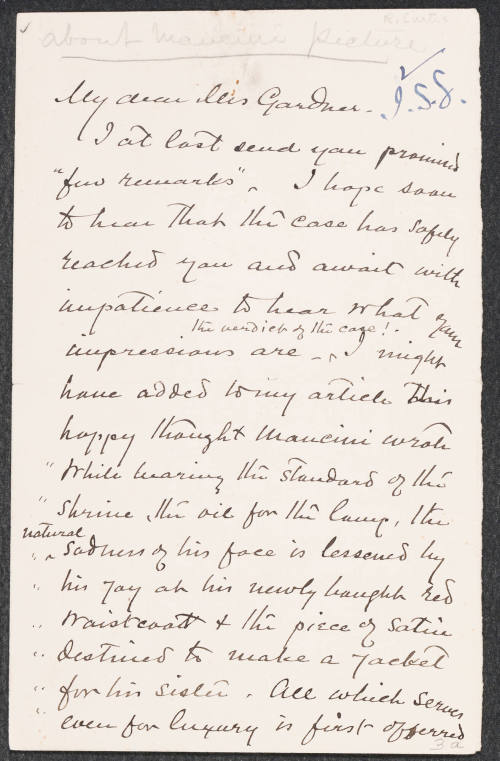 R. Curtis
about Mancini picture
I.S.G.
My dear Mrs Gardner.
I at last send you promised
"few remarks". I hope soon
to hear that the case has safely
reached you and await with
impatience to hear what your
the verdict of the case!.
impressions are - I might
have added to my article this
happy thought Mancini wrote
" While bearing the standard of the
" shrine, the oil for the lamp, the
natural
" sadness of his face is lessened by
" his joy at his newly bought red
" waistcoat & the piece of satin
" destined to make a jacket
" for his sister. All which serves
" even for luxury is first offered
3a